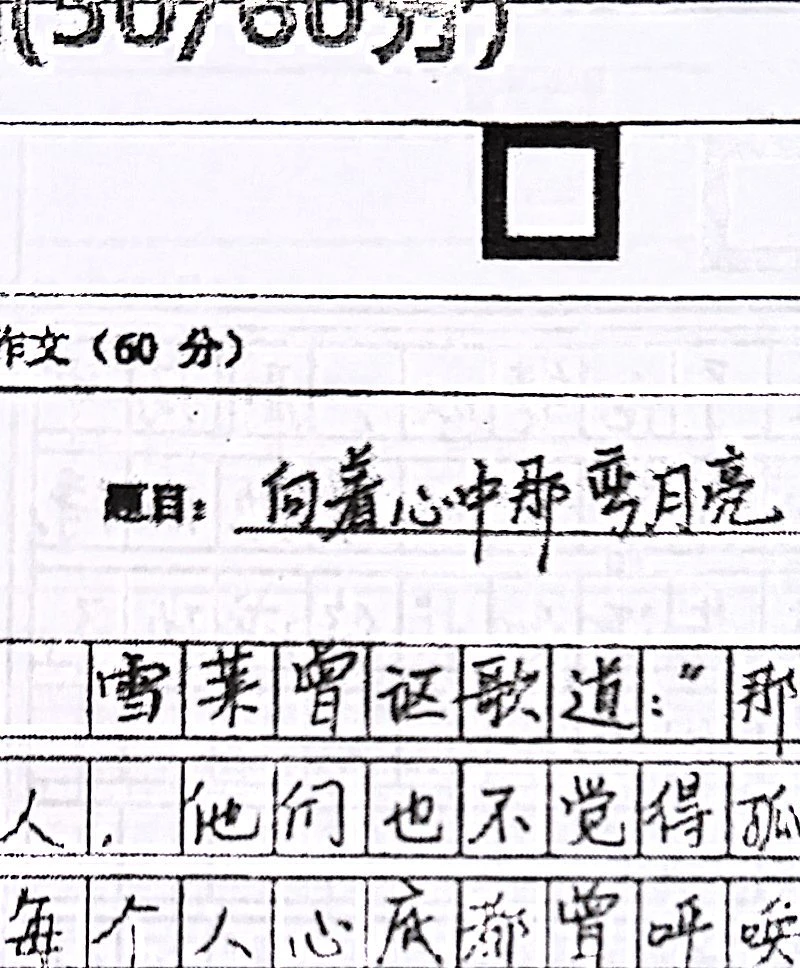 (50/60分)
作文（60 分）
题目：向着心中那弯月亮
雪莱曾讴歌道：“那
人，他们也不觉得孤
每个人心底都曾呼唤